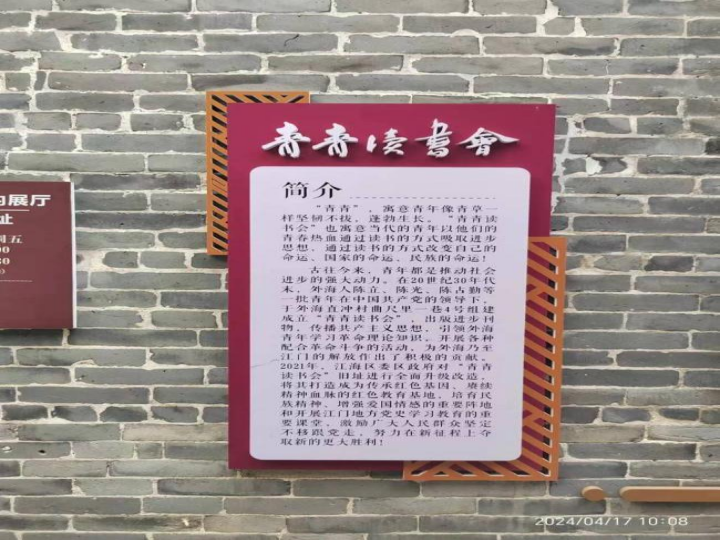 青青读书會
简介
“青青”，寓意青年像青草一
样坚韧不拔，蓬勃生长。“青青读
书会”也寓意当代的青年以他们的
青春热血通过读书的方式吸取进步
思想，通过读书的方式改变自己的
命运、国家的命运、民族的命运！
古往今来，青年都是推动社会
进步的强大动力。在20世纪30年代
末，外海人陈立、陈光、陈占勤等
一批青年在中国共产党的领导下，
于外海直冲村曲尺里一巷4号组建
成立“青青读书会”，出版进步刊
物，传播共产主义思想，引领外海
青年学习革命理论知识，开展各种
配合革命斗争的活动，为外海乃至
江门的解放作出了积极的贡献。
2021年，江海区委区政府对“青青
读书会”旧址进行全面升级改造，
将其打造成为传承红色基因，赓续
精神血脉的红色教育基地，培育民
族精神、增强爱国情感的重要阵地
和开展江门地方党史学习教育的重
要课堂，激励广大人民群众坚定
不移跟党走，努力在新征程上夺
取新的更大胜利！
的展厅
址
周五
00
30
2024/04/17 10:08